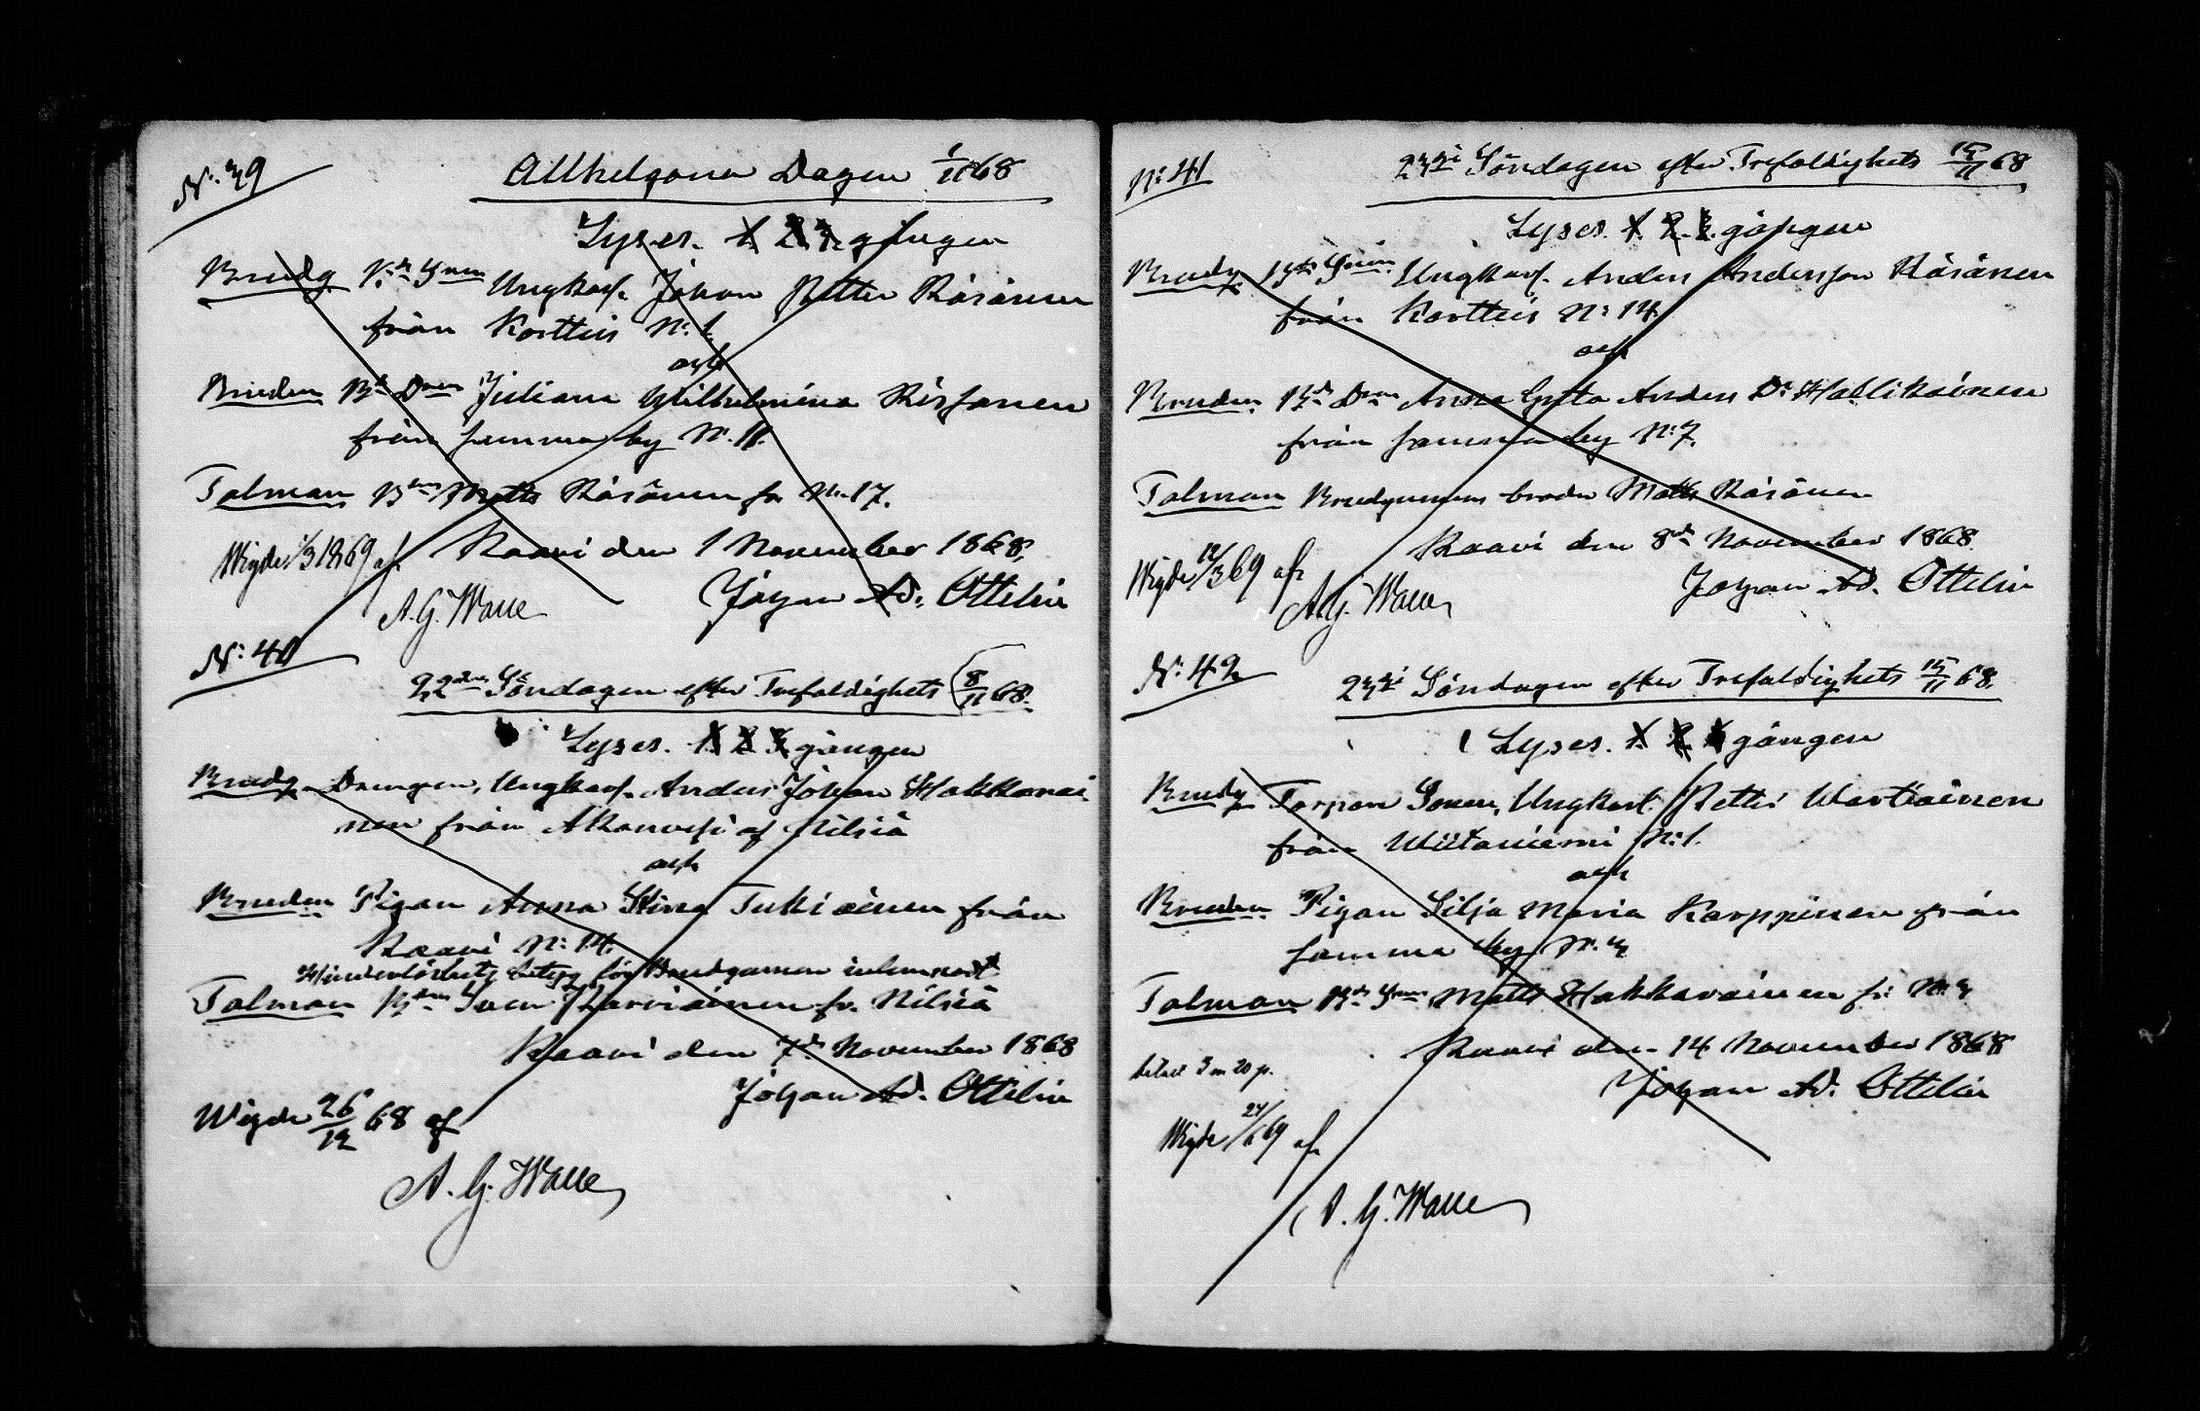 N:39
Allhelgona Dagen 1/11 68
Lyses. 1. 2. 3. gången
Brudg Bd Sonen Ungkarl. Johan Petter Räsänen
från Kortteis N:1.
och
Bruden Bd Dren Juliana Wilhelmina
från samma by N. 11.
Talman Bden Matts Räsänen fr N:17.
Kaavi den 1 November 1868.
Wigde 1/3 1869 af.
A. G. Walle
Johan Ad. Ottelin
N:40
22den Söndagen efter Trefaldighets 8/11 68.
Lyses. 1. 2. 3. gången
Brudg. Drengen, Ungkarl. Anders Johan Hakkarai
nen från Akonvesi af Nilsiä
och
Bruden Pigan Anna Stina Tukiainen från
Kaavi N:14.
Hinderlöshets betyg för Brudgumen inlemnadt
Talman Bden Sven fr. Nilsiä
Kaavi den 7de November 1868
Johan Ad. Ottelin
Wigde 26/12 68 af
A. G. Walle
N:41
23di Söndagen efter Trefaldighets 15/11 68
Lyses. 1. 2. 3. gången
Brudg. Bde Sonen Ungkarl. Anders Andersson Räsänen
från Kortteis N:14.
och
Bruden Bd Dren Anna Greta Anders Dr Hallikainen
från samma by N:7.
Talman Brudgumens broder Matts Räsänen
Kaavi den 8de November 1868.
Wigde 12/3 69 af
A. G. Walle
Johan Ad. Ottelin
N:42
23di Söndagen efter Trefaldighets 15/11 68.
Lyses. 1. 2. 3. gången
Brudg Torpare Sonen, Ungkarl. Petter Wartiainen
från Wiitaniemi N:1.
och
Bruden Pigan Silja Maria Karppinen från
samma by N. 3
Talman Bde Sonen Matts Hakkarainen fr N:3
Kaavi den 14 November 1868
betalt 3 m 20 p.
Johan Ad. Ottelin
Wigde 24/6 69 af.
A. G. Walle